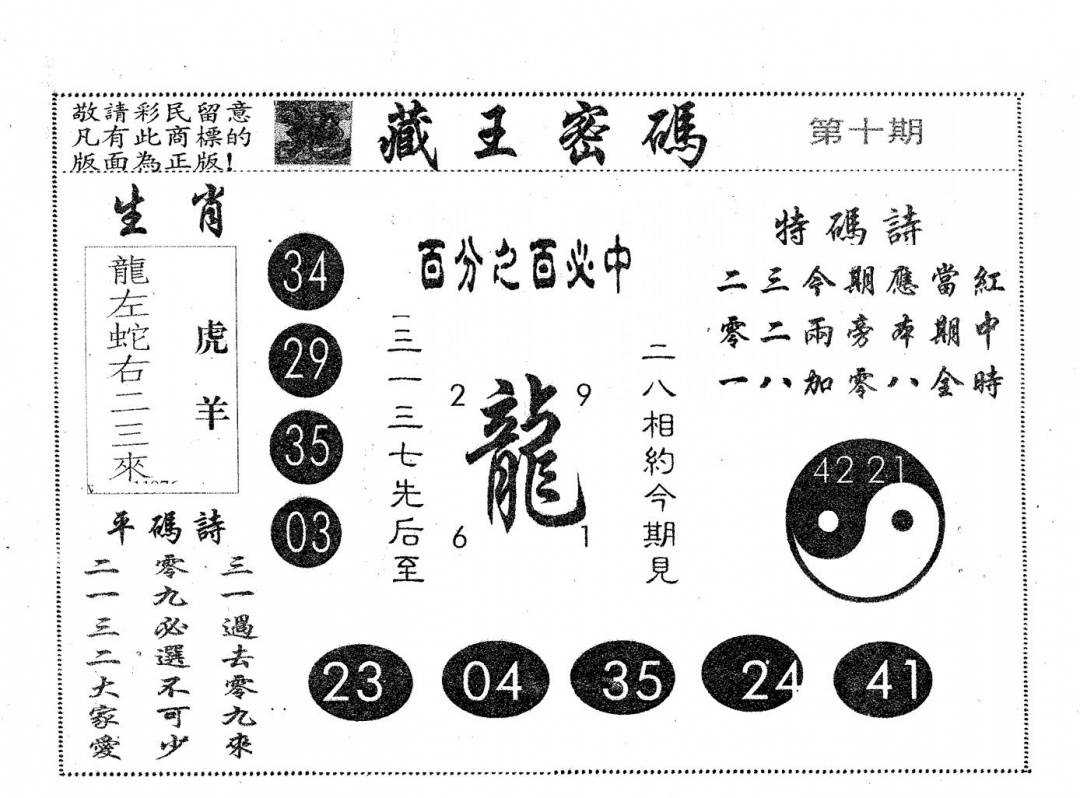 敬請彩民留意
凡有此商標的
版面為正版!
地藏王密碼
第十期
生肖
龍左蛇右二三來
虎羊
34
29
35
03
百分之百必中
三一三七先后至
2
9
龍
6
1
二八相約今期見
特碼詩
二三今期應當紅
零二兩旁本期中
一八加零八金時
42 21
平碼詩
三一遇去零九來
零九必選不可少
二一三二大家愛
23
04
35
24
41